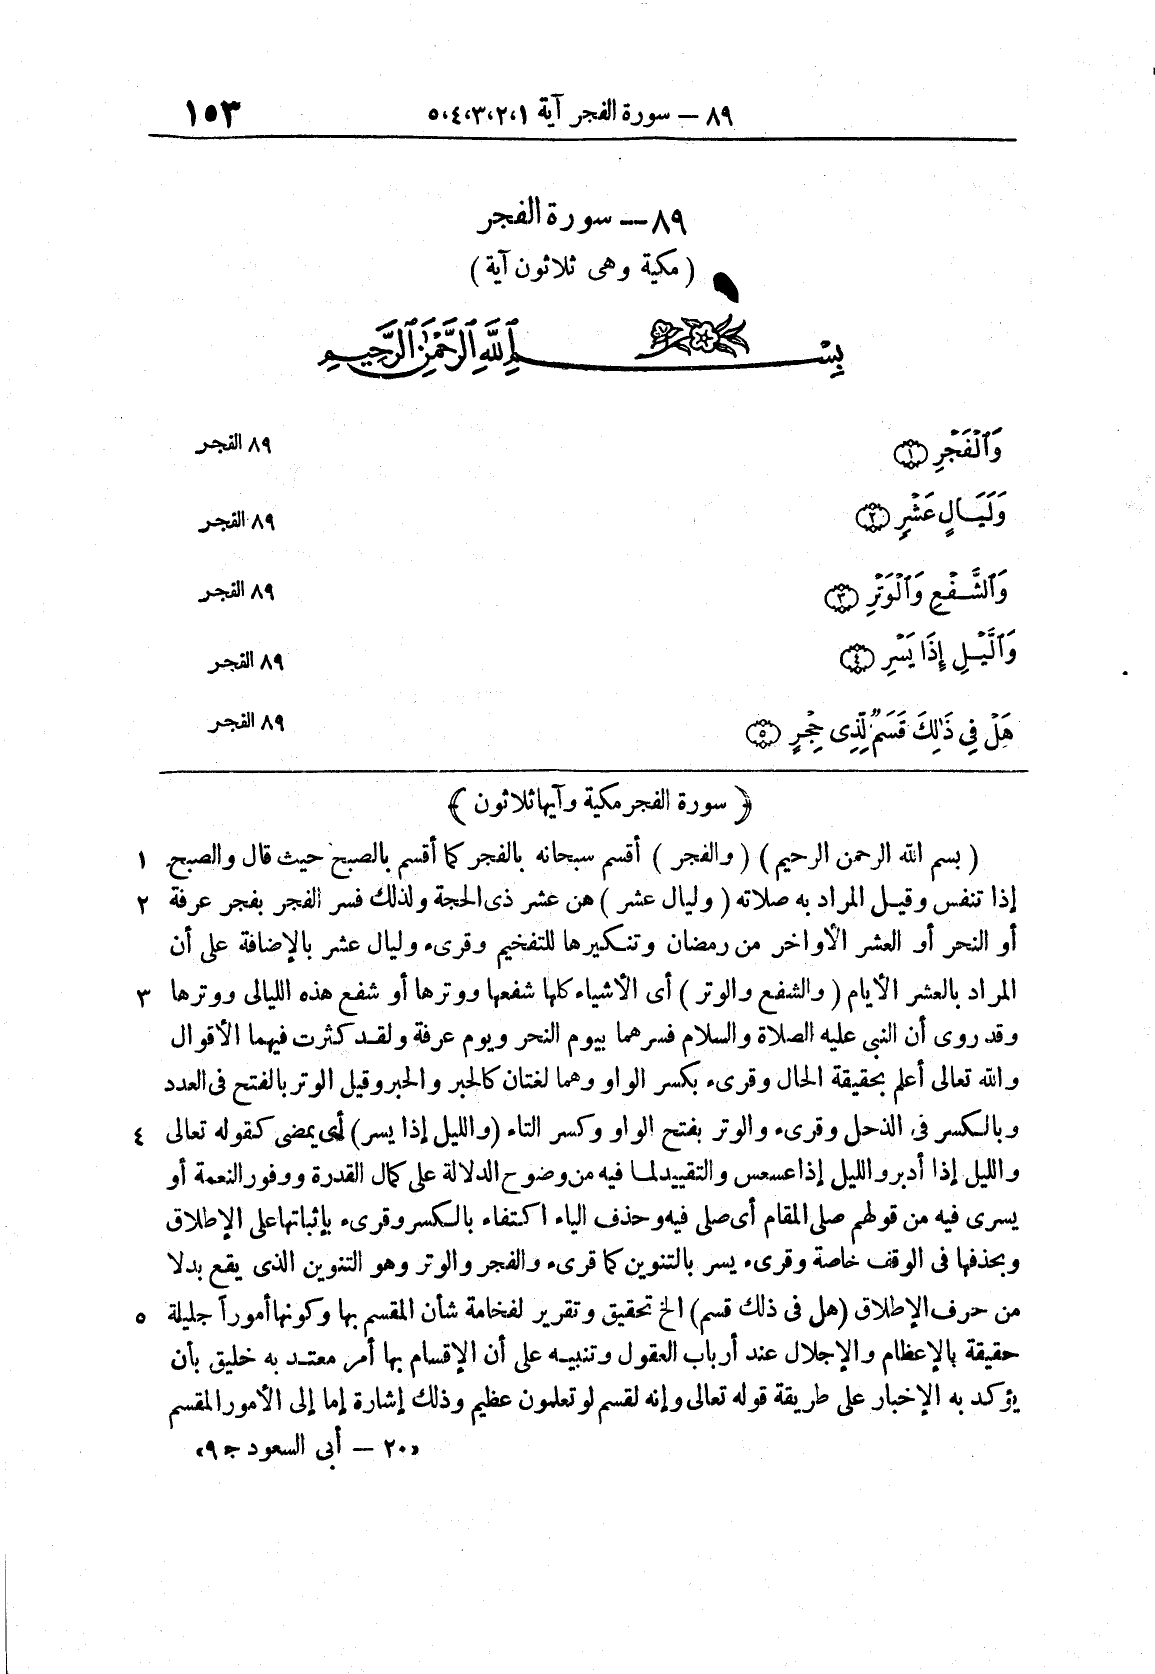 ٨٩ — سورة الفجر آية ١،٢،٣،٤،٥ ١٥٣
٨٩ — سورة الفجر
( مكية وهى ثلاثون آية )
بِسْمِ ٱللَّهِ ٱلرَّحْمَٰنِ ٱلرَّحِيمِ
وَٱلْفَجْرِ ١ ٨٩ الفجر
وَلَيَالٍ عَشْرٍ ٢ ٨٩ الفجر
وَٱلشَّفْعِ وَٱلْوَتْرِ ٣ ٨٩ الفجر
وَٱلَّيْلِ إِذَا يَسْرِ ٤ ٨٩ الفجر
هَلْ فِي ذَٰلِكَ قَسَمٌ لِّذِى حِجْرٍ ٥ ٨٩ الفجر
﴿ سورة الفجر مكية وآيها ثلاثون ﴾
( بسم الله الرحمن الرحيم ) ( والفجر ) أقسم سبحانه بالفجر كما أقسم بالصبح حيث قال والصبح ١
إذا تنفس وقيل المراد به صلاته ( وليال عشر ) هن عشر ذى الحجة ولذلك فسر الفجر بفجر عرفة ٢
أو النحر أو العشر الأواخر من رمضان وتنكيرها للتفخيم وقرىء وليال عشر بالإضافة على أن
المراد بالعشر الأيام ( والشفع والوتر ) أى الأشياء كلها شفعها ووترها أو شفع هذه الليالى ووترها ٣
وقد روى أن النبى عليه الصلاة والسلام فسرهما بيوم النحر ويوم عرفة ولقد كثرت فيهما الأقوال
والله تعالى أعلم بحقيقة الحال وقرىء بكسر الواو وهما لغتان كالحبر والحبر وقيل الوتر بالفتح فى العدد
وبالكسر فى الذحل وقرىء والوتر بفتح الواو وكسر التاء (والليل إذا يسر) أى يمضى كقوله تعالى ٤
والليل إذا أدبر والليل إذا عسعس والتقييد لما فيه من وضوح الدلالة على كمال القدرة ووفور النعمة أو
يسرى فيه من قولهم صلى المقام أى صلى فيه وحذف الياء اكتفاء بالكسر وقرىء بإثباتها على الإطلاق
وبحذفها فى الوقف خاصة وقرىء يسر بالتنوين كما قرىء والفجر والوتر وهو التنوين الذى يقع بدلا
من حرف الإطلاق (هل فى ذلك قسم) الخ تحقيق وتقرير لفخامة شأن المقسم بها وكونها أموراً جليلة ٥
حقيقة بالإعظام والإجلال عند أرباب العقول وتنبيه على أن الإقسام بها أمر معتد به خليق بأن
يؤكد به الإخبار على طريقة قوله تعالى وإنه لقسم لو تعلمون عظيم وذلك إشارة إما إلى الأمور المقسم
«٢٠ — أبى السعود ج ٩»